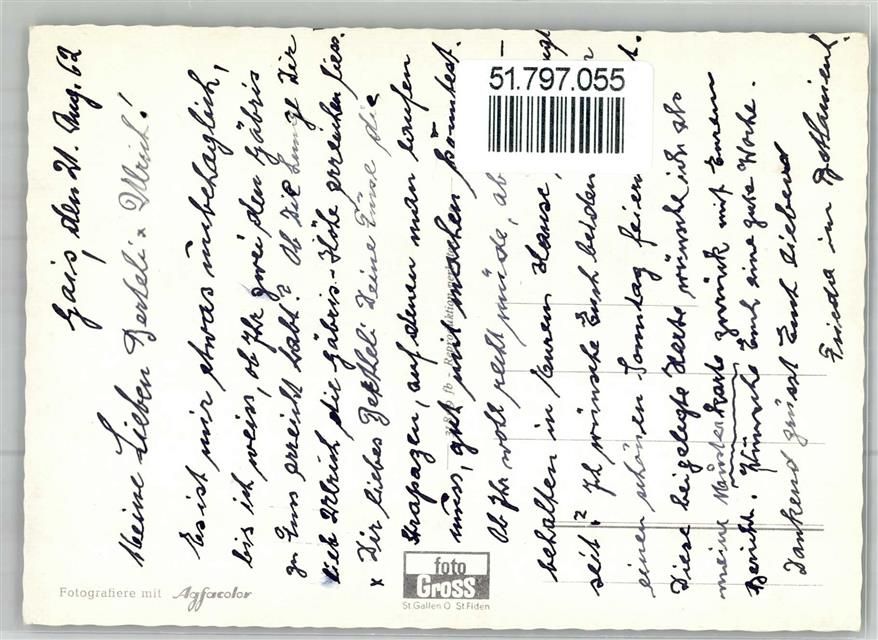 Gais, den 21. Aug. 62
Meine Lieben Bertheli & Ulrich!
Es ist mir etwas unbehaglich,
bis ich weiss, ob Ihr zwei den Gäbris
zu Fuss erreicht habt? Ob die Lunge Dir
lieb Ulrich die Gäbris-Höhe erreichen liess.
x Dir liebes Bertheli Deine Füsse die
Strapazen, auf denen man laufen
muss, gut mitmachen konntest.
Ob Ihr wohl recht müde, ab
behalten in Eurem Hause,
seit? Ich wünsche Euch beiden
einen schönen Sonntag
Diese beigelegte Karte wünsche ich als
meine Musterkarte zurück mit Eurem
Bericht. Wünsche Euch eine gute Woche.
Dankend grüsst Euch liebend
Frieda im
51.797.055
Reproduktion
Fotografiere mit Agfacolor
foto
Gross
St. Gallen O St. Fiden